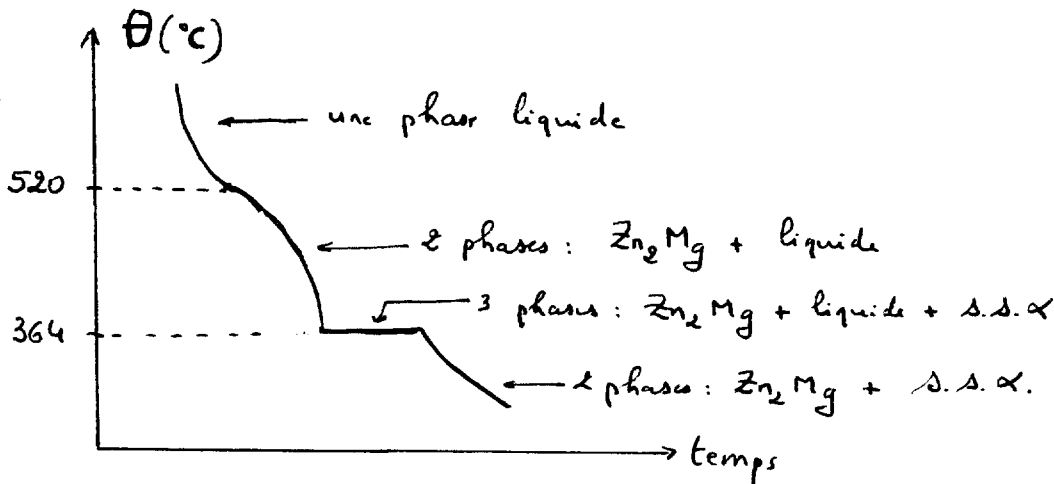 θ(°C)
une phase liquide
520
2 phases : Zn₂Mg + liquide
3 phases : Zn₂Mg + liquide + s.s. α
364
2 phases : Zn₂Mg + s.s. α.
temps